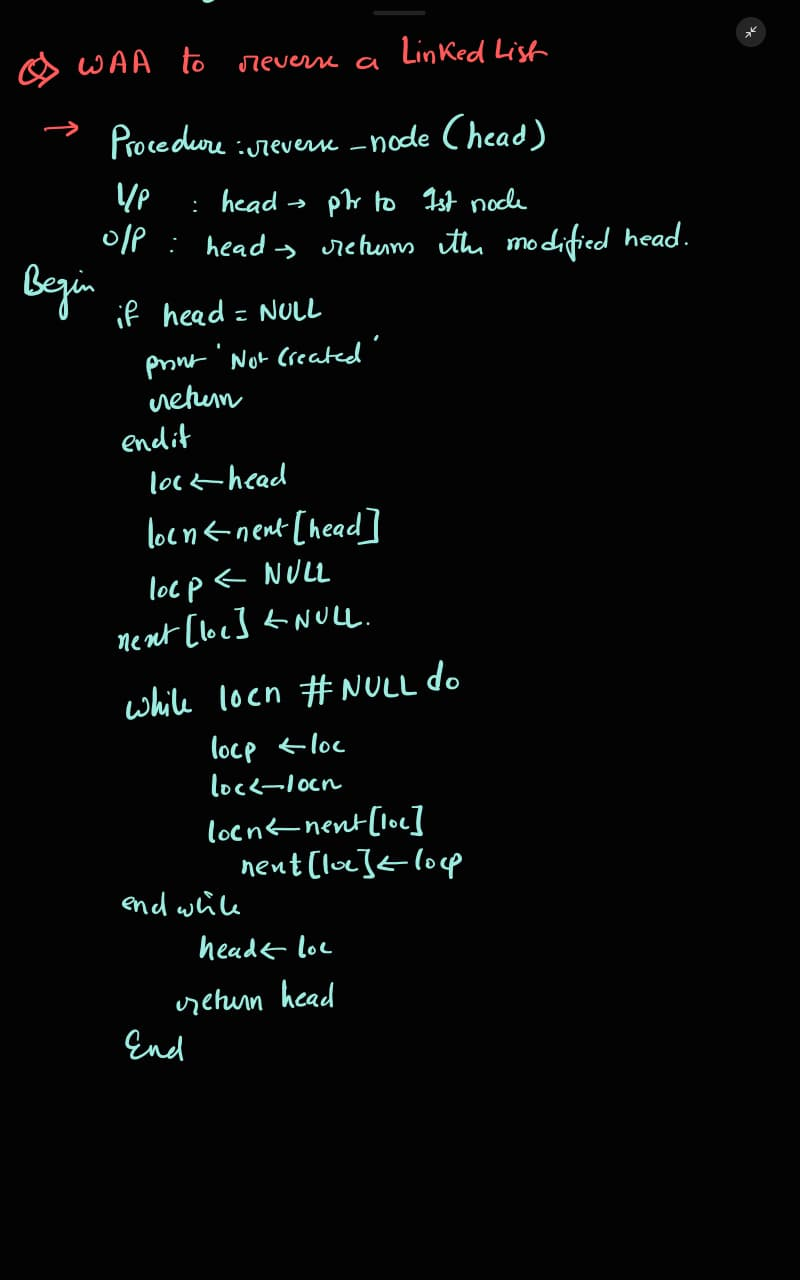 Q) WAA to reverse a Linked List
→ Procedure : reverse _node (head)
I/P : head → ptr to 1st node
O/P : head → returns the modified head.
Begin
if head = NULL
print 'Not Created'
return
endif
loc ← head
locn ← next [head]
locp ← NULL
next [loc] ← NULL.
while locn # NULL do
locp ← loc
loc ← locn
locn ← next [loc]
next [loc] ← locp
end while
head ← loc
return head
End